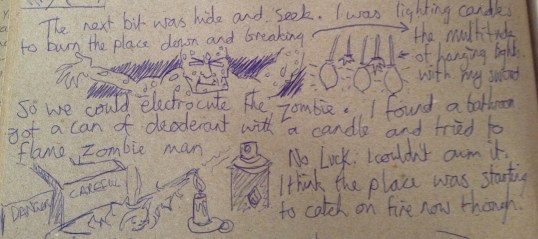 The next bit was hide and seek. I was lighting candles
to burn the place down and breaking
the multitude
of hanging lights
with my sword
So we could electrocute the zombie. I found a bathroom
got a can of deoderant with a candle and tried to
flame Zombie man
No Luck. I couldn't aim it.
I think the place was starting
to catch on fire now though.
DANGER
CAREFUL